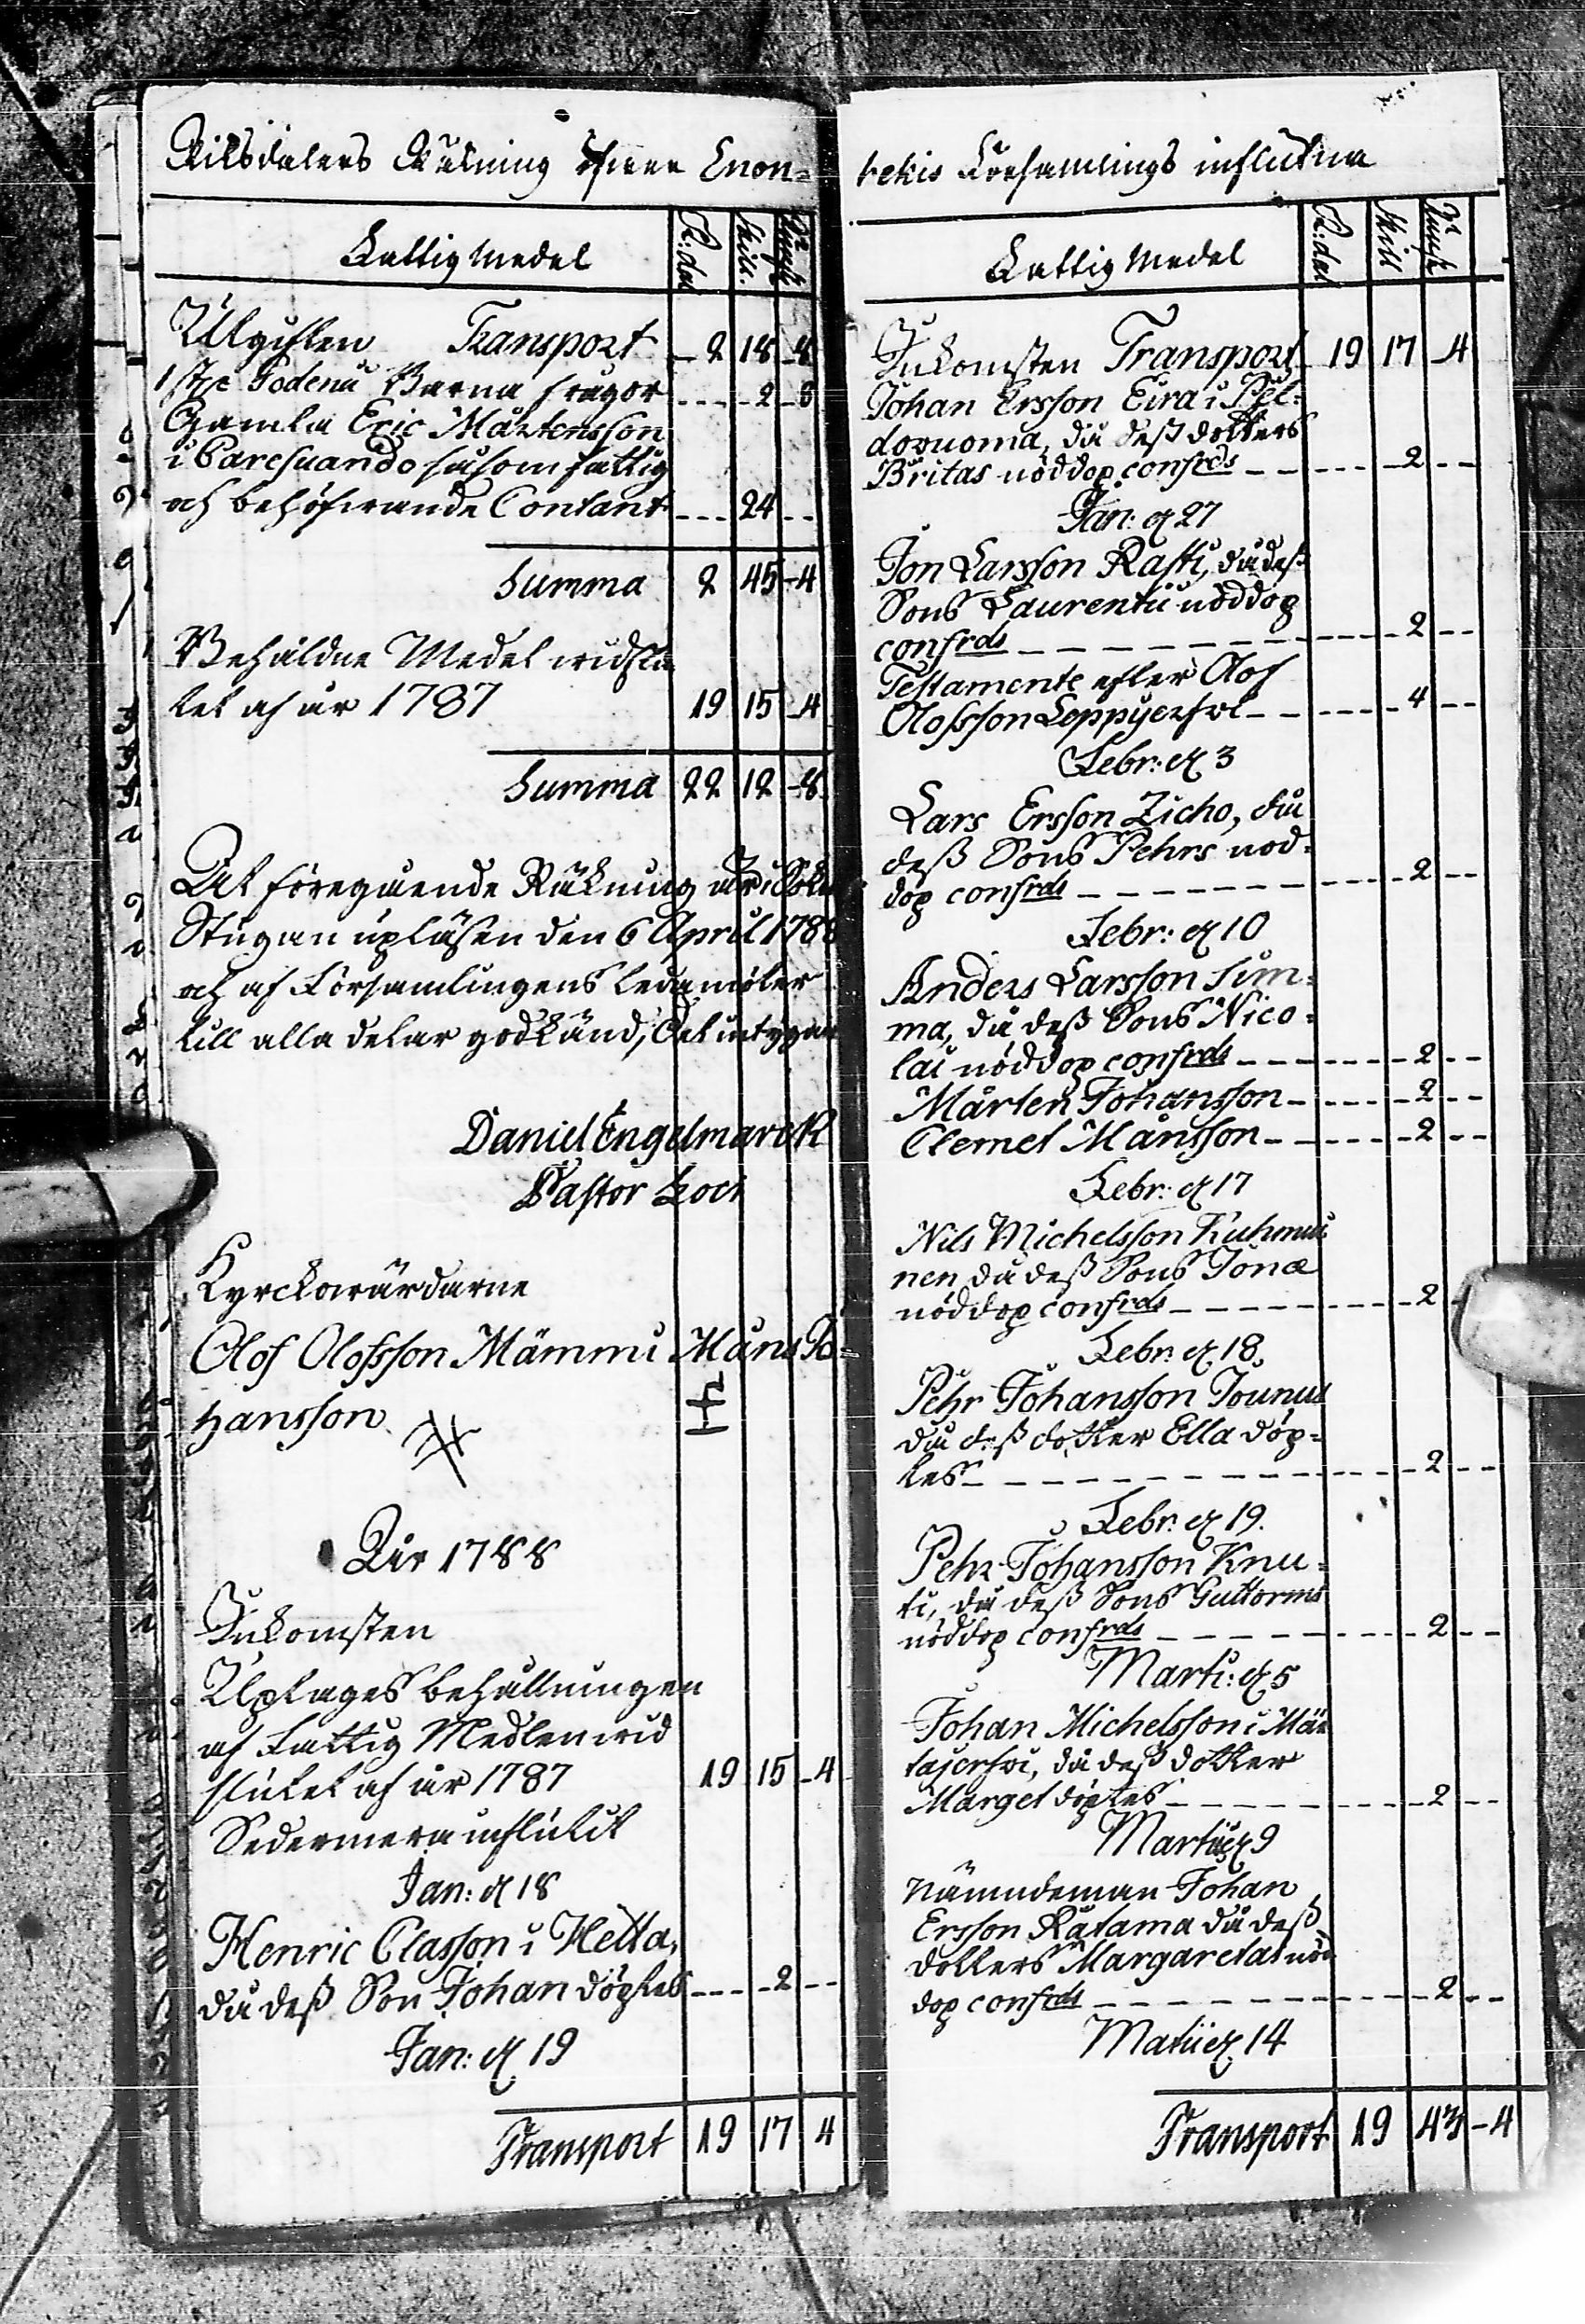 Riksdalers Räkning öfwer Enon=
Fattig Medel R:dal Skill. Runst
Utgiften Transport 2 18 8
1 st/e Fodenii Barna frågor 2 8
Gamla Eric Mårtensson
i Caresuando såsom fattig
och behöfwande Contant 24
Summa 2 45 4
Behåldne Medel wid slu
tet af år 1787 19 15 4
Summa 22 12 8
At föregående Räkning är i Sockn
Stugan upläsen den 6 April 1788
och af Församlingens ledamöter
till alla delar godkänd, Det intygar
Daniel Engelmarck
Pastor Loci
Kyrckowärdarne
Olof Olofsson Mämmi Måns Jo=
hansson
År 1788
Inkomsten
Uptages behållningen
af Fattig Medlen wid
slutet af år 1787 19 15 4
Sedermera influtit
Jan: d 18
Henric Classon i Hetta,
då dess Son Johan döptes 2
Jan: d 19
Transport 19 17 4
tekis Församlings influtna
Fattig Medel R:dal Skill Runst
Inkomsten Transport 19 17 4
Johan Ersson Eira i Pel=
dovuoma, då dess dotters
Britas nöddop confrds 2
Jan: d 27
Jon Larsson Rasti, då dess
Sons Laurentii nöddop
confrds 2
Testamente efter Olof
Olofsson Leppyerfwi 4
Febr: d 3
Lars Ersson Zicho, då
dess Sons Pehrs nöd=
dop confrds 2
Febr: d 10
Anders Larsson Sim=
ma, då dess Sons Nico=
lai nöddop confrds 2
Mårten Johansson 2
Clemet Månsson 2
Febr: d 17
Nils Michelsson Kuhmui
nen, då dess Sons Jonæ
nöddop confrds 2
Febr: d 18.
Pehr Johansson Jounus
då dess dotter Ella döp=
tes 2
Febr: d 19.
Pehr Johansson Knu=
ti, då dess Sons Guttorms
nöddop confrds 2
Marti: d 5
Johan Michelsson i Män
tajerfwi, då dess dotter
Marget döptes 2
Martii d 9
Nämndeman Johan
Ersson Ratama då dess
dotters Margaretas nöd
dop confrds 2
Matii d 14
Transport 19 43 4